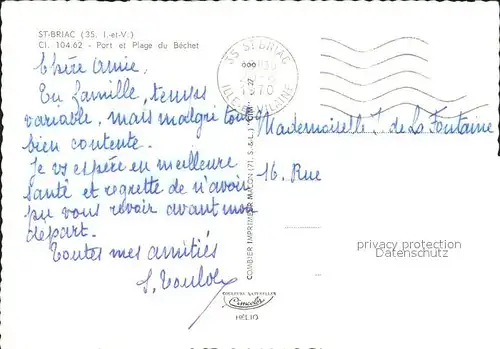 ST-BRIAC (35. I.-et-V.)
Cl. 104.62 - Port et Plage du Béchet
Chère Amie,
En famille, temps
variable, mais malgré tout
bien contente.
Je vs espère en meilleure
santé et regrette de n'avoir
pu vous revoir avant mon
départ.
Toutes mes amitiés
35 ST BRIAC
1970
ILLE-ET-VILAINE
Mademoiselle J. de La Fontaine
16. Rue
COMBIER IMPRIMEUR MACON (71. S.-&-L.)
privacy protection
Datenschutz
COULEURS NATURELLES
Cimcolor
HÉLIO